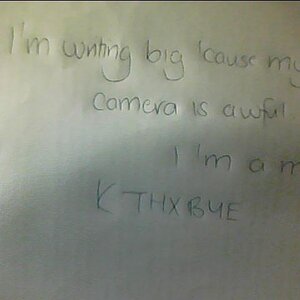 I'm writing big 'cause my
camera is awful.
I'm a m
K THXBYE